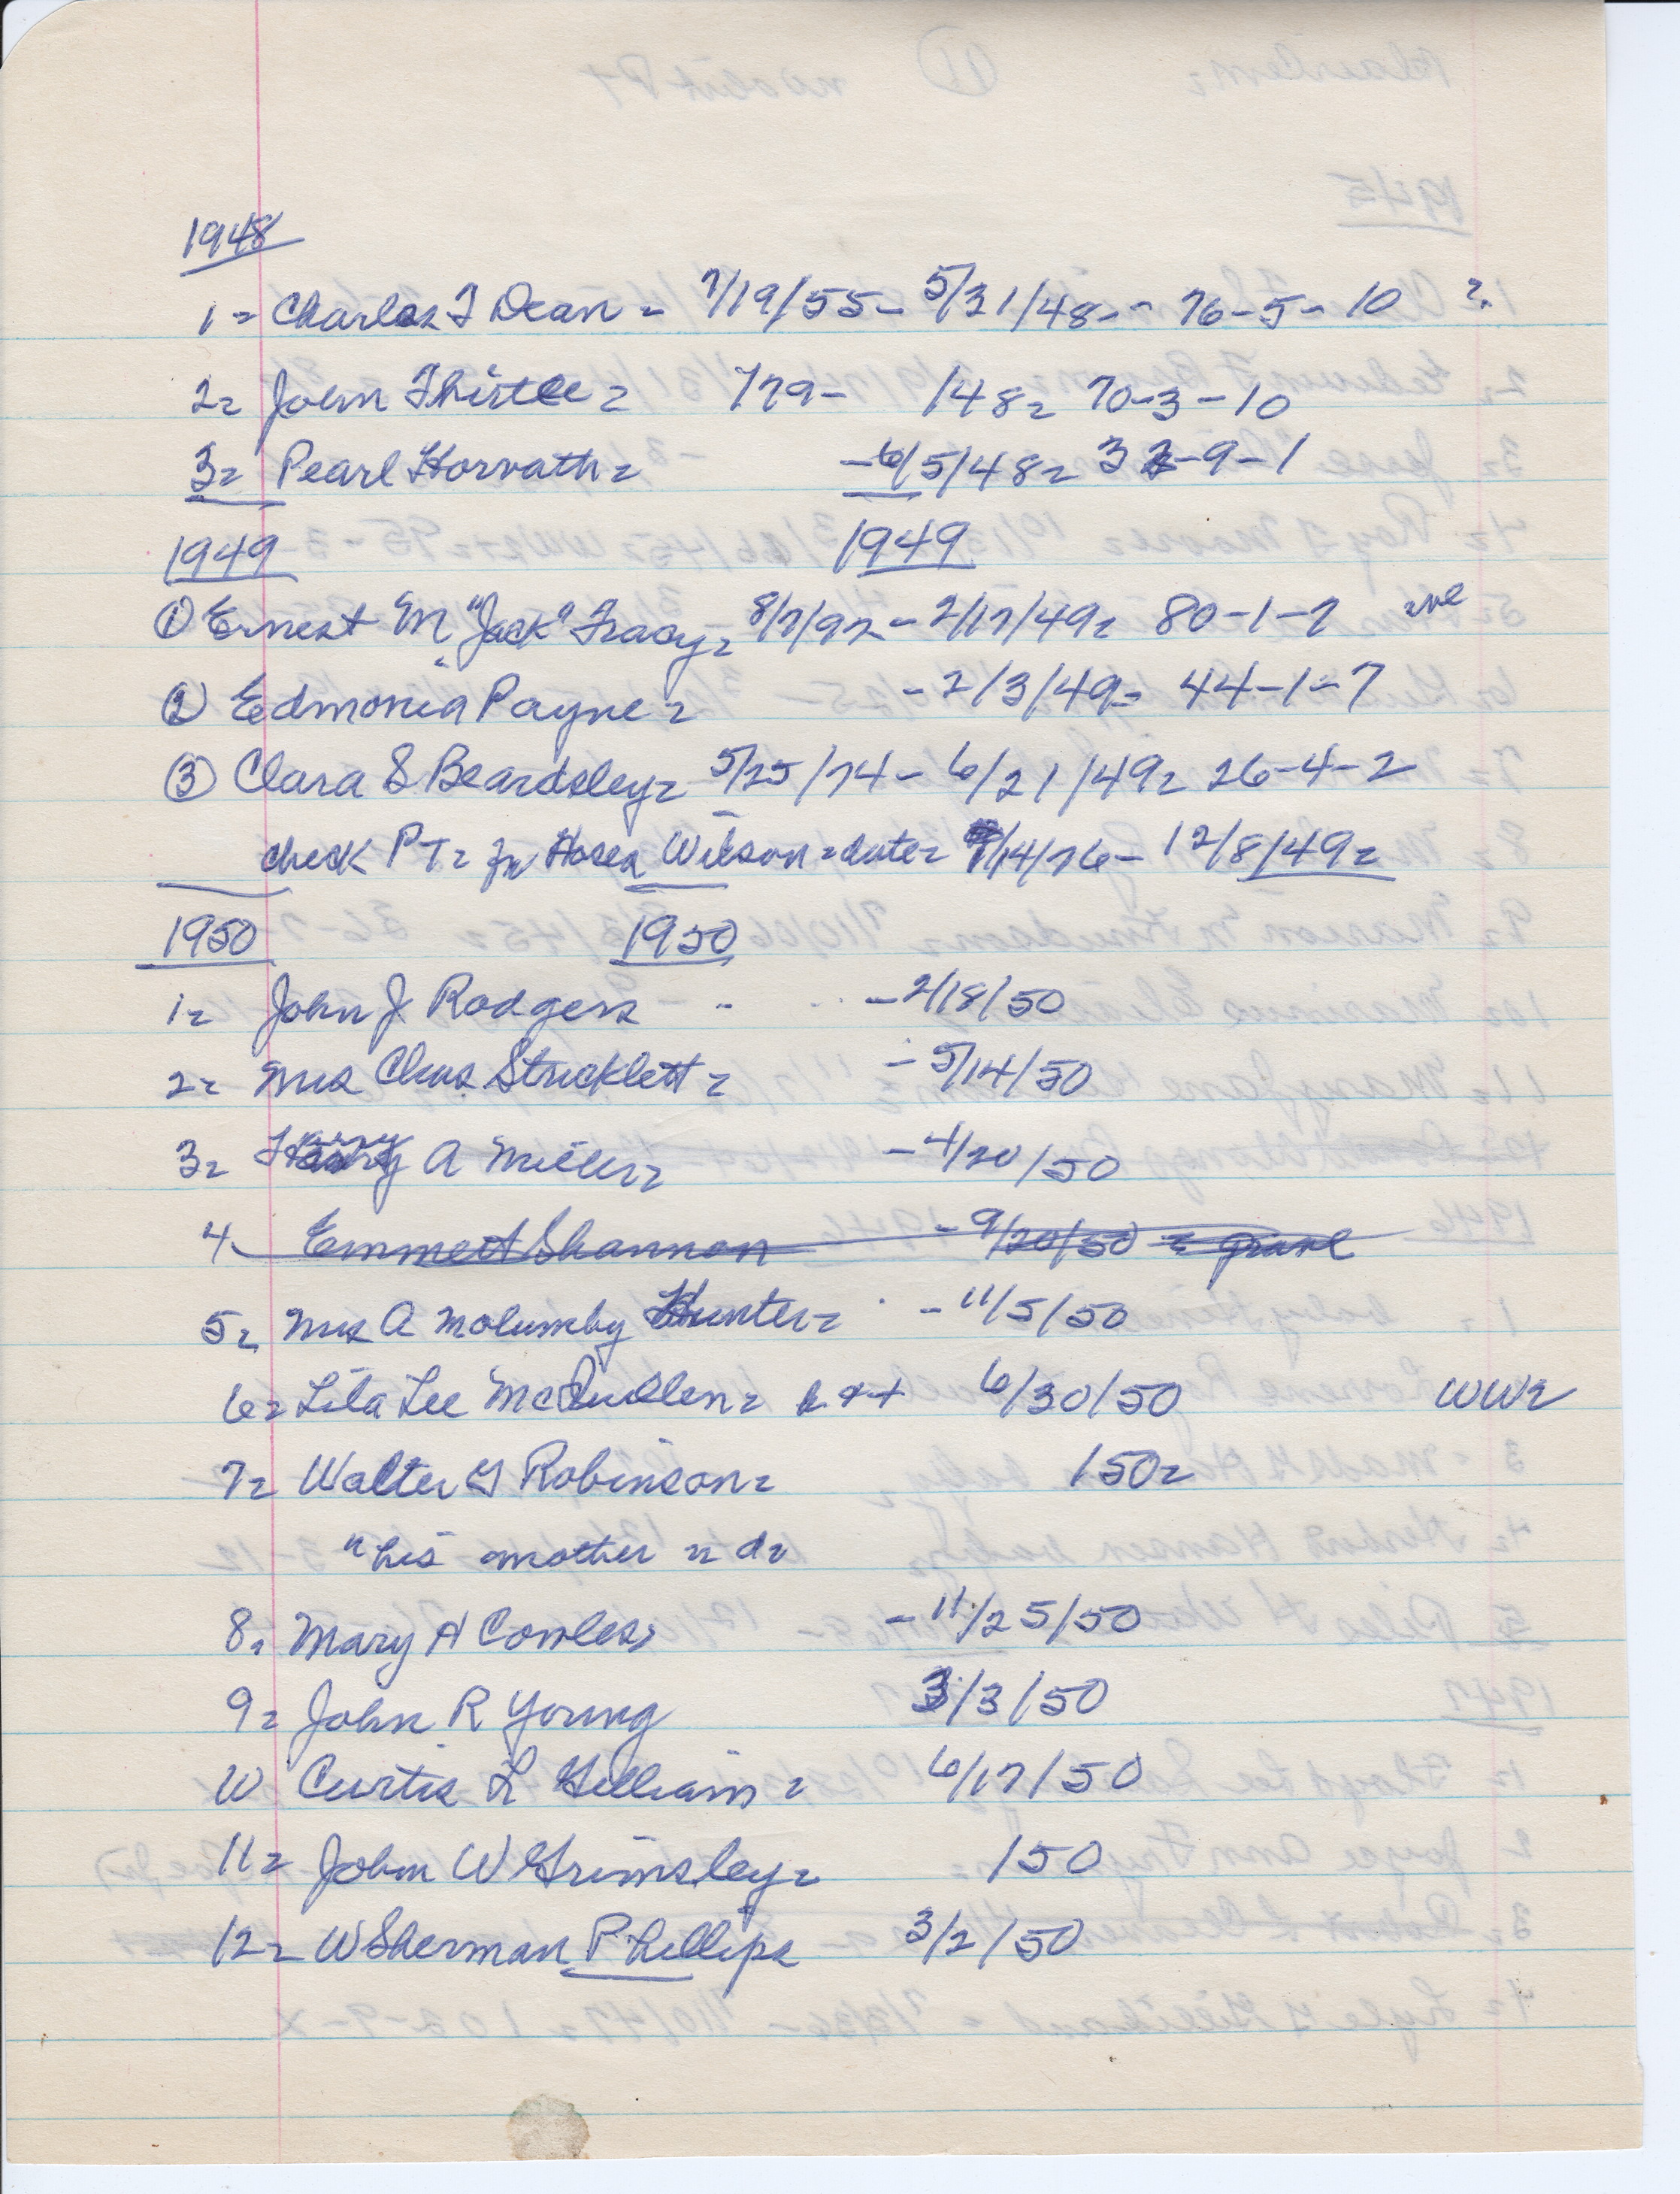 1948
1= Charles F Dean = 7/19/55 - 5/31/48 - - 76-5-10 ?
2= John Thistle = 179- 148= 70-3-10
3= Pearl Horvath = - 6/5/48= 33-9-1
1949 1949
① Ernest M "Jack" Tracy= 8/7/92 - 2/17/49= 80-1-7
② Edmonia Payne = - 2/3/49= 44-1-7
③ Clara S Beardsley= 5/25/74 - 6/21/49= 26-4-2
check PT= for Hosea Wilson = date= 9/14/76 - 12/8/49=
1950 1950
1= John J. Rodgers - - 2/18/50
2= Mrs Chas Stricklett = - 5/14/50
3= Harry A Miller= - 4/20/50
4 Emmett Shannon - 9/20/50 = grave
5= Mrs A Molumby Hunter= - 11/5/50
6= Lila Lee McQuillen= 6/30/50 WW2
7= Walter G Robinson= 150=
"his mother = d=
8= Mary A Cowless - 11/25/50
9= John R Young 3/3/50
10 Curtis L Gilliam = 6/17/50
11= John W Grimsley= 150
12= W Sherman Phillips 3/2/50